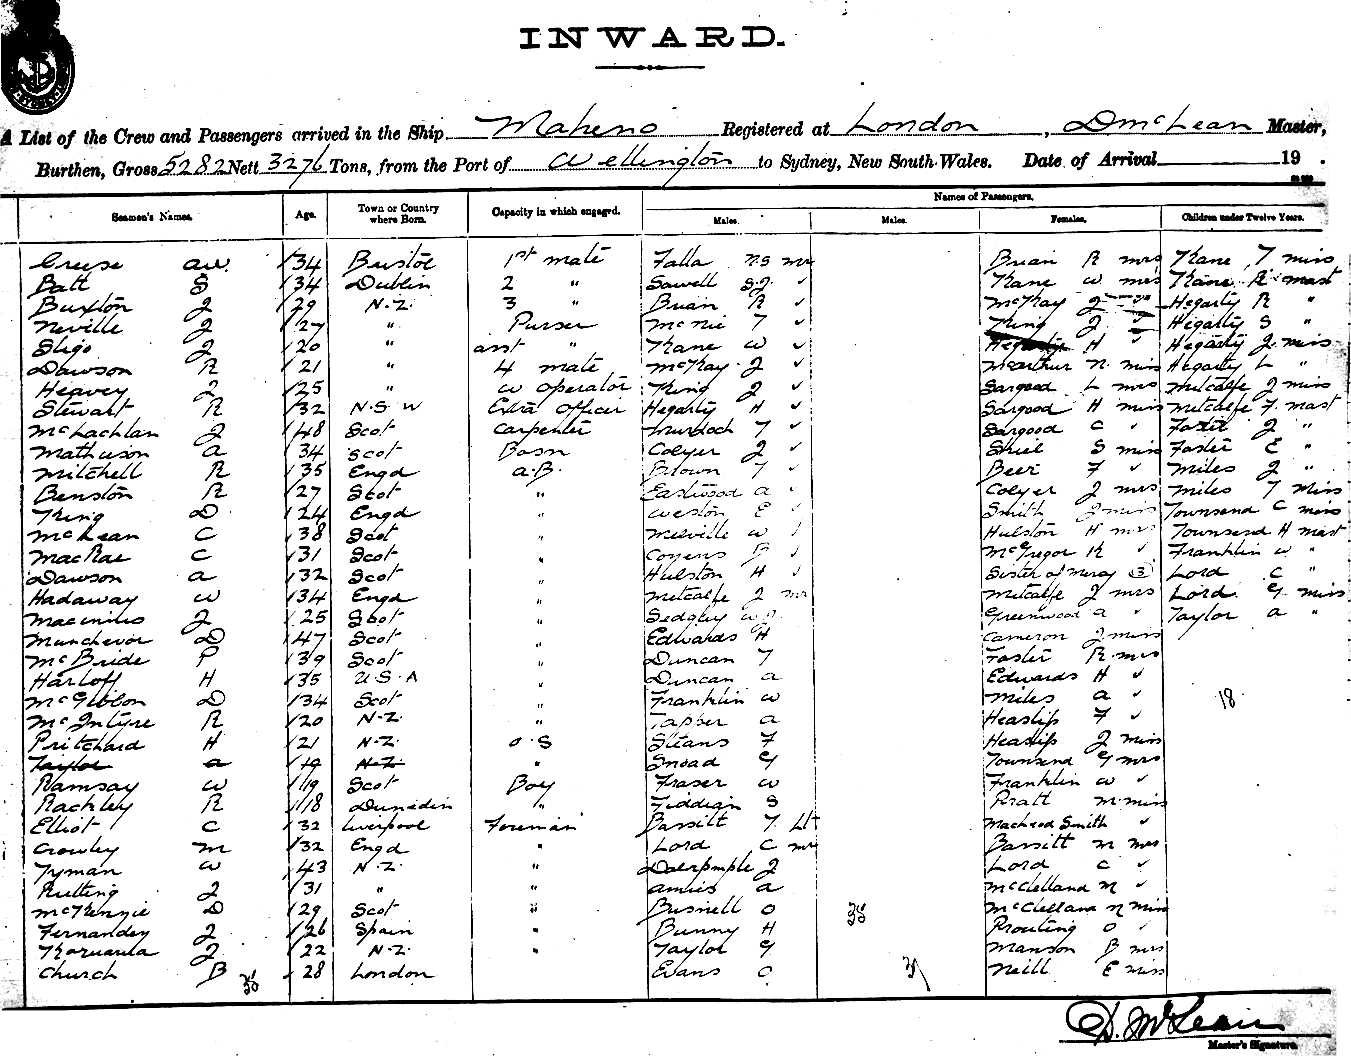 INWARD.
A List of the Crew and Passengers arrived in the Ship Maheno Registered at London, D McLean Master,
Burthen, Gross 5282 Nett 3276 Tons, from the Port of Wellington to Sydney, New South Wales. Date of Arrival 19 .
Names of Passengers.
Seamen's Names. Age. Town or Country where Born. Capacity in which engaged. Males. Males. Females. Children under Twelve Years.
Creese AW 34 Bristol 1st mate Falla NS mr Brian R mrs Kane T miss
Batt S 34 Dublin 2 " Sawell SJ ✓ Kane W mrs Kane R mast
Buxton J 29 N.Z. 3 " Brian R ✓ McKay J Hegarty R "
Neville J 27 " Purser McNie T ✓ King J ✓ Hegarty S "
Sligo J 20 " asst " Kane W ✓ Hegarty H ✓ Hegarty J miss
Dawson R 21 " 4 mate McKay J ✓ McArthur N miss Hegarty L "
Heavey J 25 " W operator King J ✓ Sargood L mrs Metcalfe J miss
Stewart R 32 N.S.W Extra Officer Hegarty H ✓ Sargood H miss Metcalfe F mast
McLachlan J 48 Scot Carpenter Murdoch T ✓ Sargood C ✓ Foster J "
Mathieson A 34 Scot Bosn Colyer J ✓ Shiel S miss Foster E "
Mitchell R 35 Engd A.B. Brown T ✓ Beer F ✓ Miles J "
Benston R 27 Scot " Eastwood A ✓ Colyer J mrs Miles T Miss
King D 24 Engd " Weston E ✓ Smith J miss Townsend C miss
McLean C 38 Scot " Melville W Hulston H mrs Townsend H mast
MacRae C 31 Scot " B ✓ McGregor R ✓ Franklin W "
Dawson A 32 Scot " Hulston H ✓ Sister of Mercy (3) Lord C "
Hadaway W 34 Engd " Metcalfe J mr Metcalfe J mrs Lord G miss
J 25 Scot " Sedgley Greenwood A ✓ Taylor A "
D 47 Scot " Edwards H Cameron J miss
McBride P 39 Scot " Duncan T Foster R mrs
Harloff H 35 U.S.A " Duncan A Edwards H ✓
McGibbon D 34 Scot " Franklin W Miles A ✓ 18
McIntyre R 20 N.Z. " Tapper A Heaslip F ✓
Pritchard H 21 N.Z. O.S Steans F Heaslip J miss
Taylor A 19 N.Z " Snoad G Townsend G mrs
Ramsay W 19 Scot Boy Fraser W Franklin W ✓
Rackley R 18 Dunedin " Fiddian S Pratt M miss
Elliot C 32 Liverpool Foreman Bassitt T Lt Macleod Smith ✓
Crowley M 32 Engd " Lord C mr Bassitt M mrs
Tyman W 43 N.Z. " Dalrymple J Lord C ✓
Rutting J 31 " " Amies A McClelland M ✓
McKenzie D 29 Scot " Busnell O McClelland M miss
Fernandez J 26 Spain " Bunny H Prouting O ✓
J 22 N.Z. " Taylor G Manson B mrs
Church B 28 London Evans C Neill E miss
D. McLean
Master's Signature.